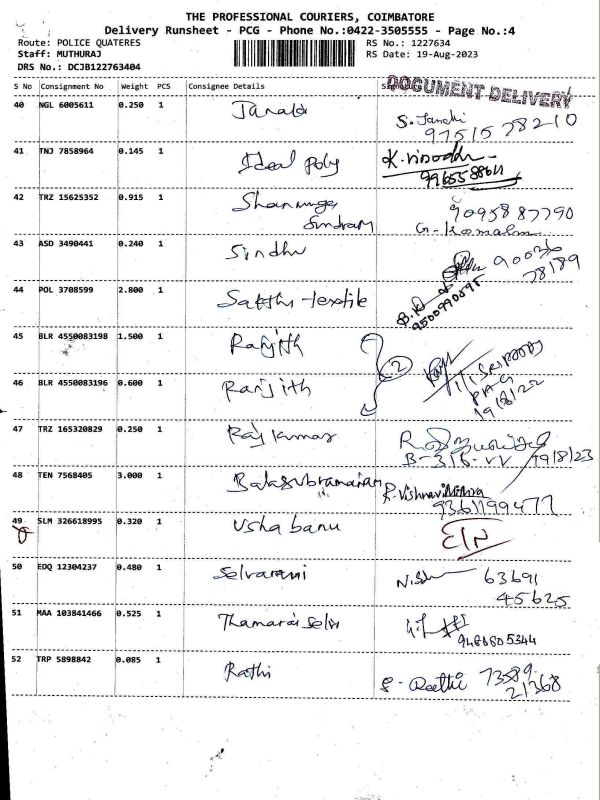 THE PROFESSIONAL COURIERS, COIMBATORE
Delivery Runsheet - PCG - Phone No.:0422-3505555 - Page No.:4
Route: POLICE QUATERES RS No.: 1227634
Staff: MUTHURAJ RS Date: 19-Aug-2023
DRS No.: DCJB122763404
DOCUMENT DELIVERY
S No Consignment No Weight PCS Consignee Details
40 NGL 6005611 0.250 1 Janaki
S. Janaki
97515 78210
41 TNJ 7858964 0.145 1 Ideal poly K. vinodh
42 TRZ 15625352 0.915 1 Shanmuga
Sundram
90958 87790
G. Komalm
43 ASD 3490441 0.240 1 Sindhu
90036
78189
44 POL 3708599 2.800 1 Sakthi textile
9500990595
45 BLR 4550083198 1.500 1 Ranjith
2
46 BLR 4550083196 0.600 1 Ranjith
19/8/22
47 TRZ 165320829 0.250 1 Raj kumar
B-316-VV 19/8/23
48 TEN 7568405 3.000 1 Balasubramaniam
9361199477
49 SLM 326618995 0.320 1 Usha banu
50 EDQ 12304237 0.480 1 Selvarani
63691
45625
51 MAA 103841466 0.525 1 Thamarai selvi
9488805344
52 TRP 5898842 0.085 1 Rathi
S. Rathi 73589
21368